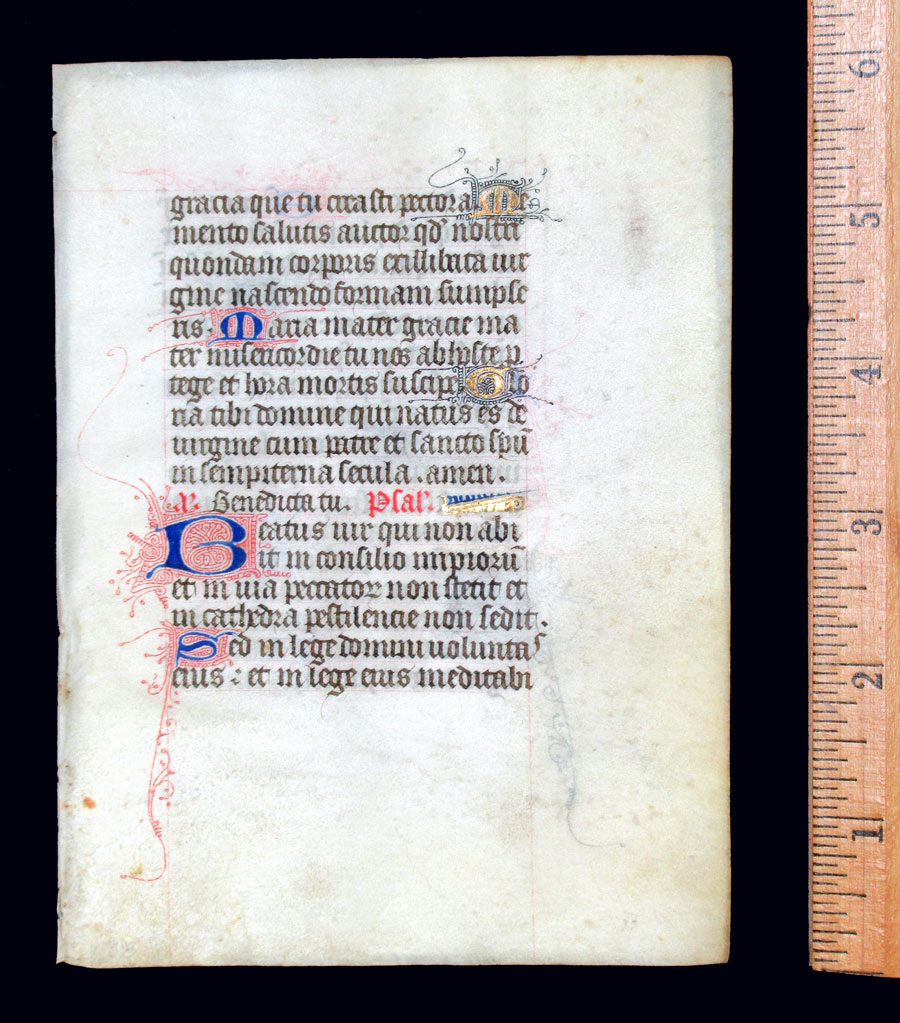 gracia que tu creasti pectora. Me
mento salutis auctor qd' nostri
quondam corporis ex illibata uir
gine nascendo formam sumpse
ris. Maria mater gracie ma
ter misericordie tu nos ab hoste p
tege et hora mortis suscipe. Glo
ria tibi domine qui natus es de
uirgine cum patre et sancto spū
in sempiterna secula. amen.
A. Benedicta tu. Psal.
Beatus uir qui non abi
it in consilio impiorū
et in uia peccator non stetit et
in cathedra pestilencie non sedit.
Sed in lege domini voluntas
eius: et in lege eius meditabi
6
5
4
3
2
1